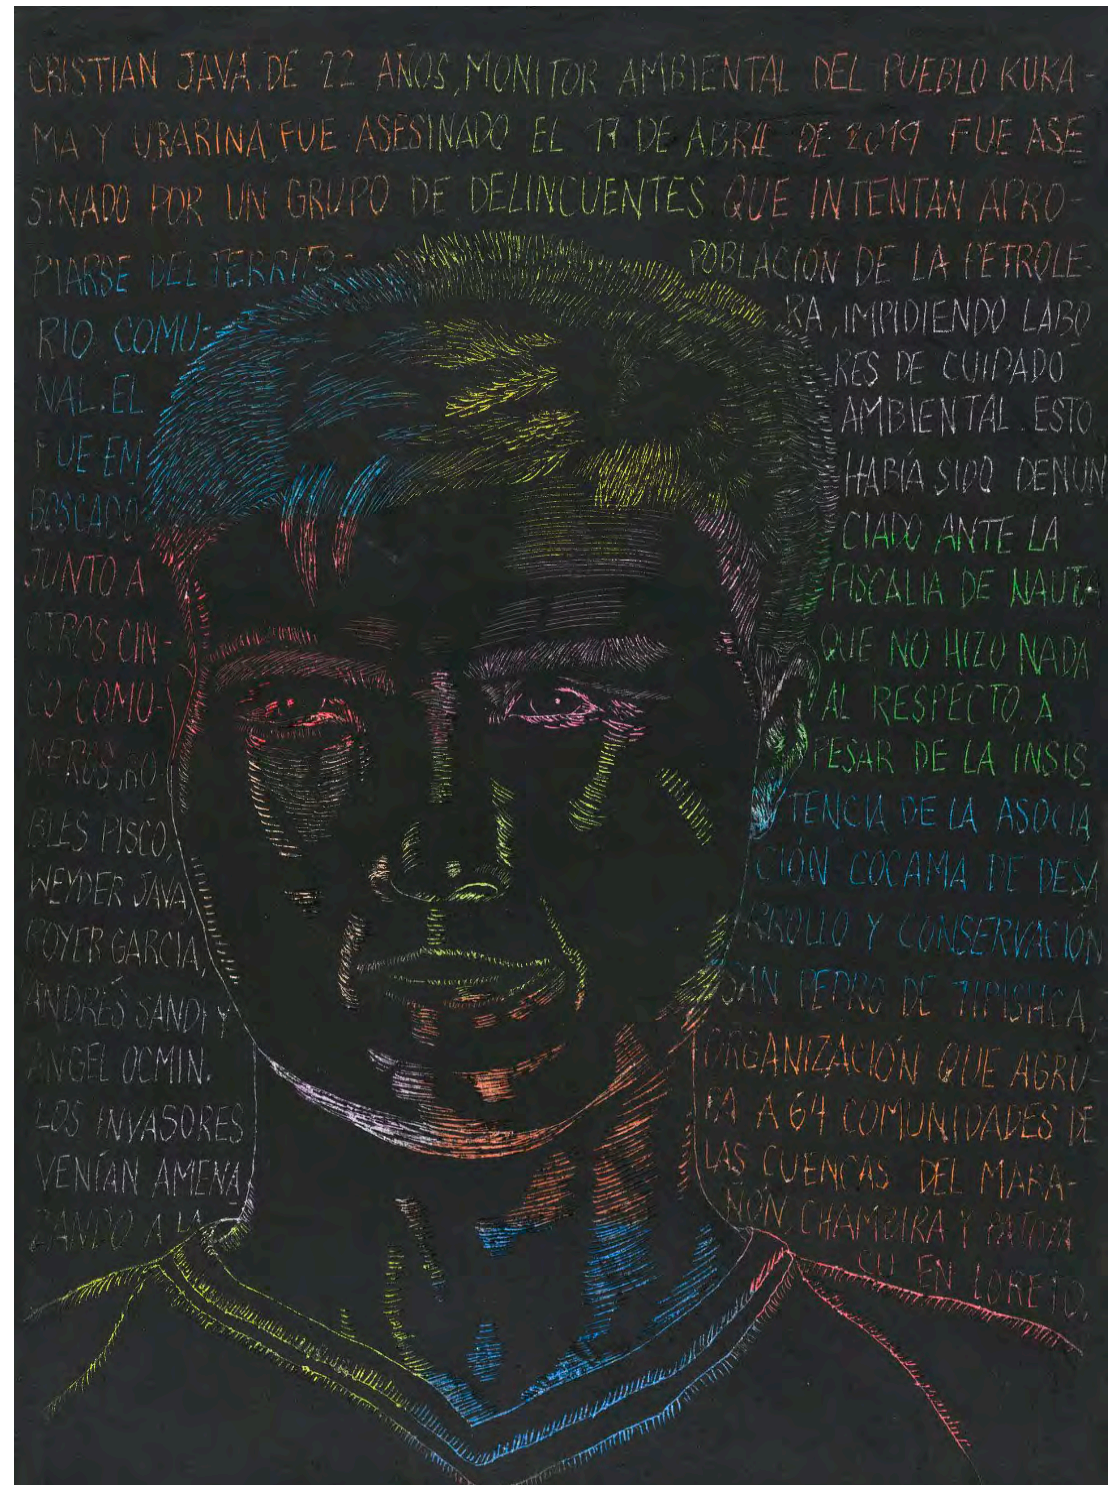 CRISTIAN JAVA, DE 22 AÑOS, MONITOR AMBIENTAL DEL PUEBLO KUKA-
MA Y URARINA, FUE ASESINADO EL 17 DE ABRIL DE 2019 FUE ASE
SINADO POR UN GRUPO DE DELINCUENTES QUE INTENTAN APRO-
PIARSE DEL TERRITO-
RIO COMU-
NAL. ÉL
FUE EM
BOSCADO
JUNTO A
OTROS CIN-
CO COMU-
NEROS, RO
BLES PISCO,
WEYDER JAVA,
ROYER GARCIA,
ANDRÉS SANDI Y
ANGEL OCMIN.
LOS INVASORES
VENÍAN AMENA
ZANDO A LA
POBLACIÓN DE LA PETROLE-
RA, IMPIDIENDO LABO
RES DE CUIDADO
AMBIENTAL. ESTO
HABÍA SIDO DENUN
CIADO ANTE LA
FISCALIA DE NAUTA
QUE NO HIZO NADA
AL RESPECTO, A
PESAR DE LA INSIS
TENCIA DE LA ASOCIA
CIÓN COCAMA DE DESA
RROLLO Y CONSERVACIÓN
SAN PEDRO DE TIPISHCA,
ORGANIZACIÓN QUE AGRU-
PA A 64 COMUNIDADES DE
LAS CUENCAS DEL MARA-
ÑON, CHAMBIRA Y PATOYA
CU EN LORETO.